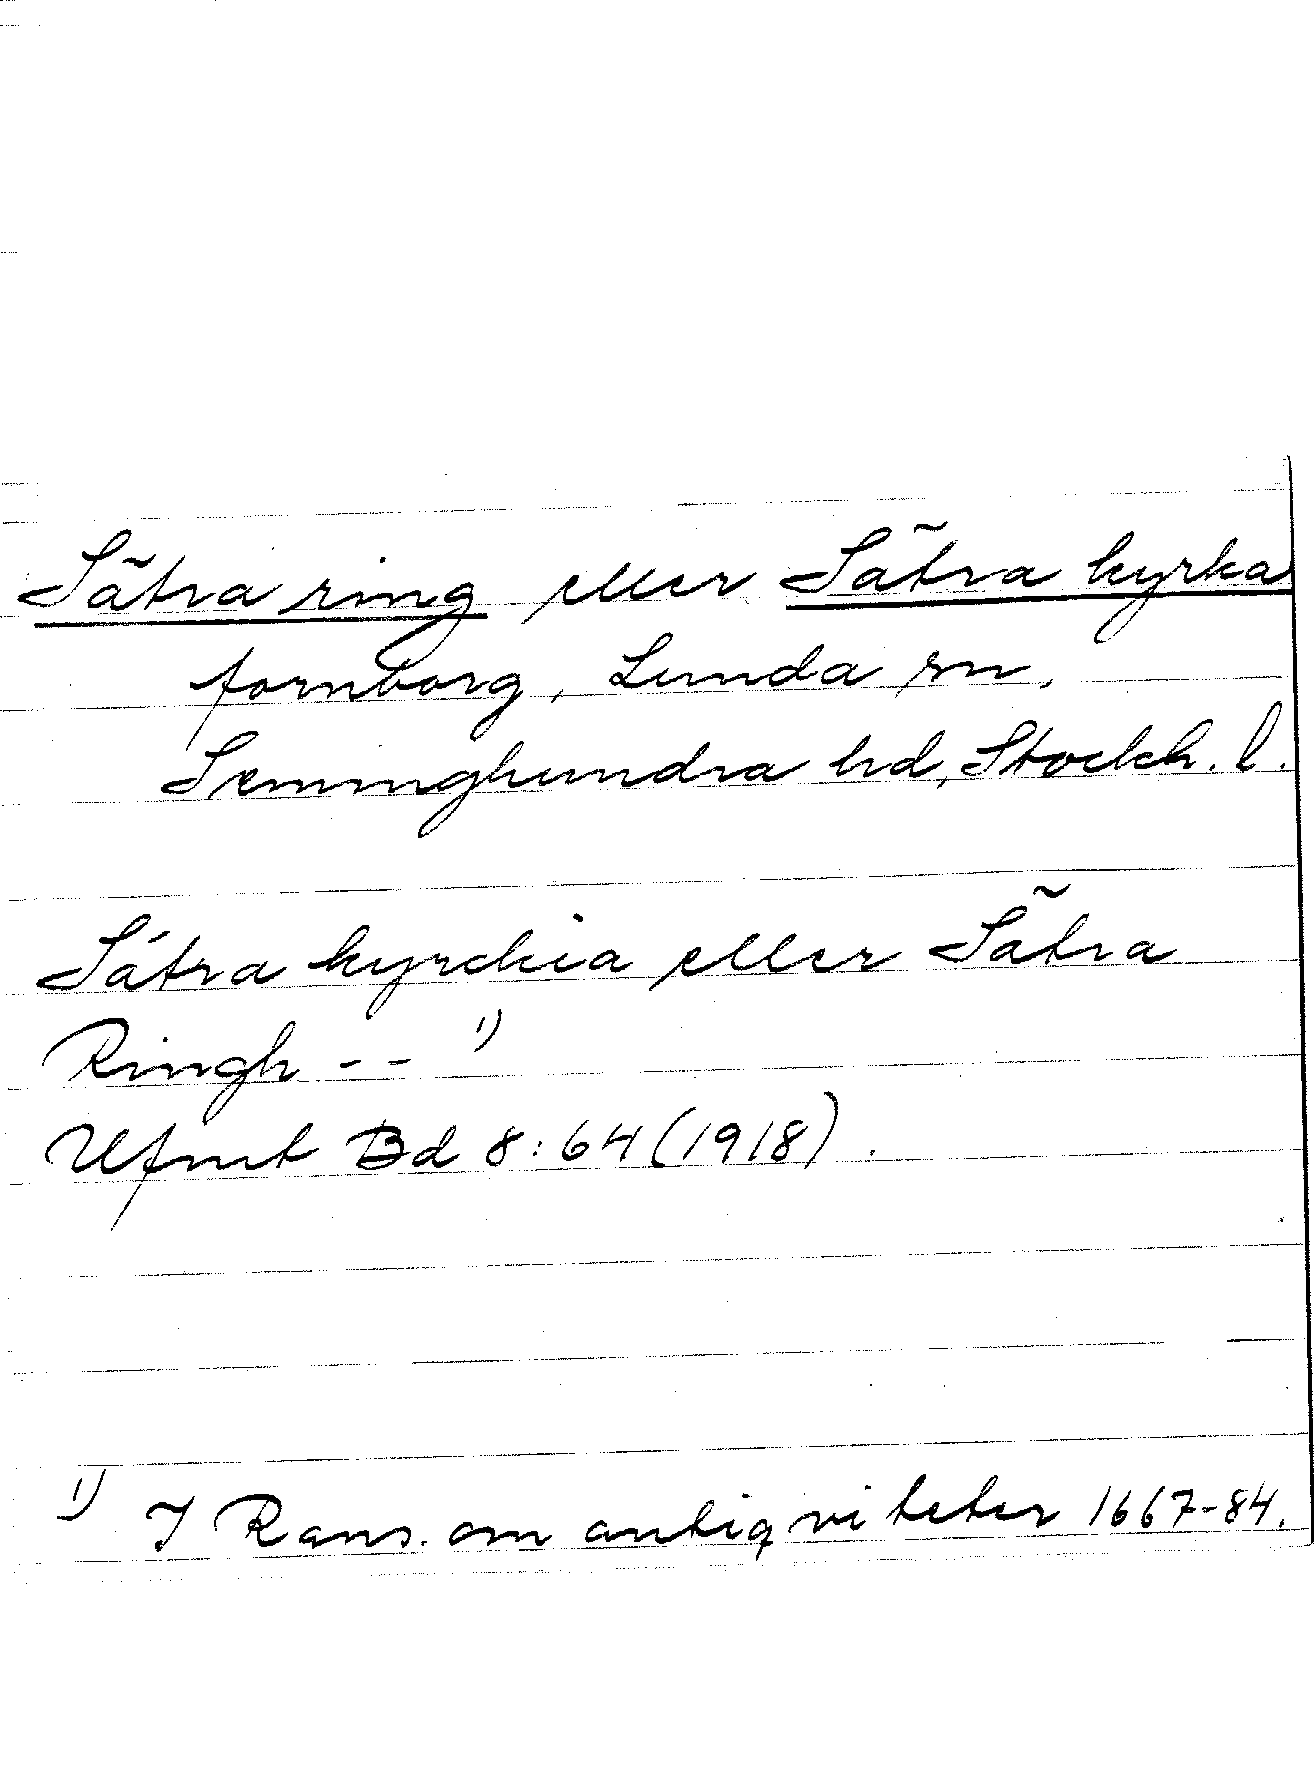 Sätra ring eller Sätra kyrka
fornborg, Lunda sn,
Seminghundra hd, Stockh. l.
Sätra kyrckia eller Sätra
Ringh -- 1)
Ufmt Bd 8:64 (1918).
1) I Rans. om antiqviteter 1667-84.